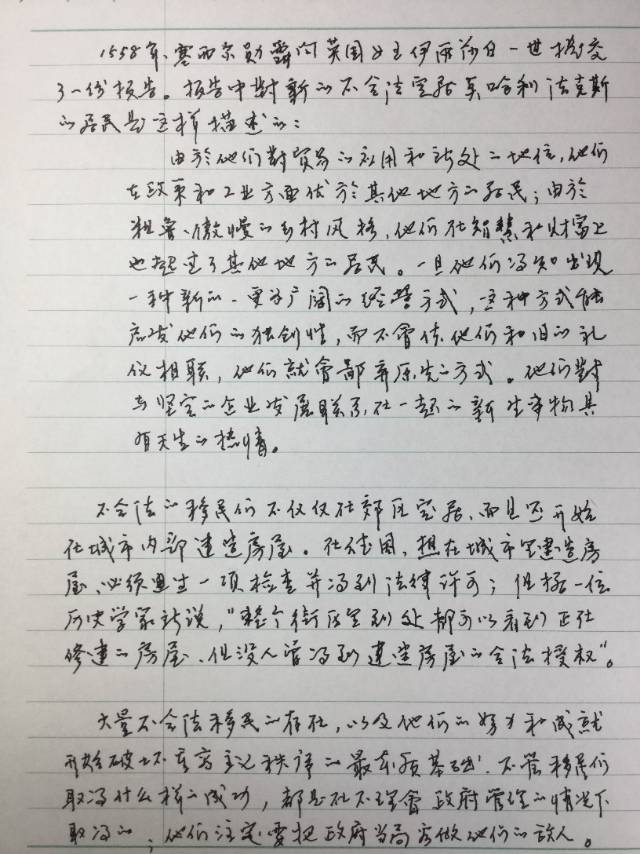 1558年、塞西尔勋爵向英国女王伊丽莎白一世提交
了一份报告。报告中對新的不合法定居英哈利法克斯
的居民是这样描述的：
由於他们對贸易的应用和所处的地位,他们
在政策和工业方面优於其他地方的居民；由於
粗鲁、傲慢的乡村风格,他们在智慧和财富上
也超过了其他地方的居民。一旦他们得知出现
一种新的、更为广阔的经营方式,这种方式能
启发他们的独创性,而不曾使他们和旧的礼
仪相联,他们就會鄙弃原先的方式。他们對
与坚定的企业发展联系在一起的新生事物具
有天生的热情。
不合法的移民们不仅仅在郊区定居、而且还开始
在城市内部建造房屋。在法国,想在城市里建造房
屋、必须通过一项检查并得到法律许可；但据一位
历史学家所说,"整个街区里到处都可以看到正在
修建的房屋、但没人曾得到建造房屋的合法授权"。
大量不合法移民的存在,以及他们的努力和成就
开始破坏重商主义秩序的最本质基础。不管移民们
取得什么样的成功,都是在不理會政府管理的情况下
取得的；他们注定要把政府当局看做他们的敌人。